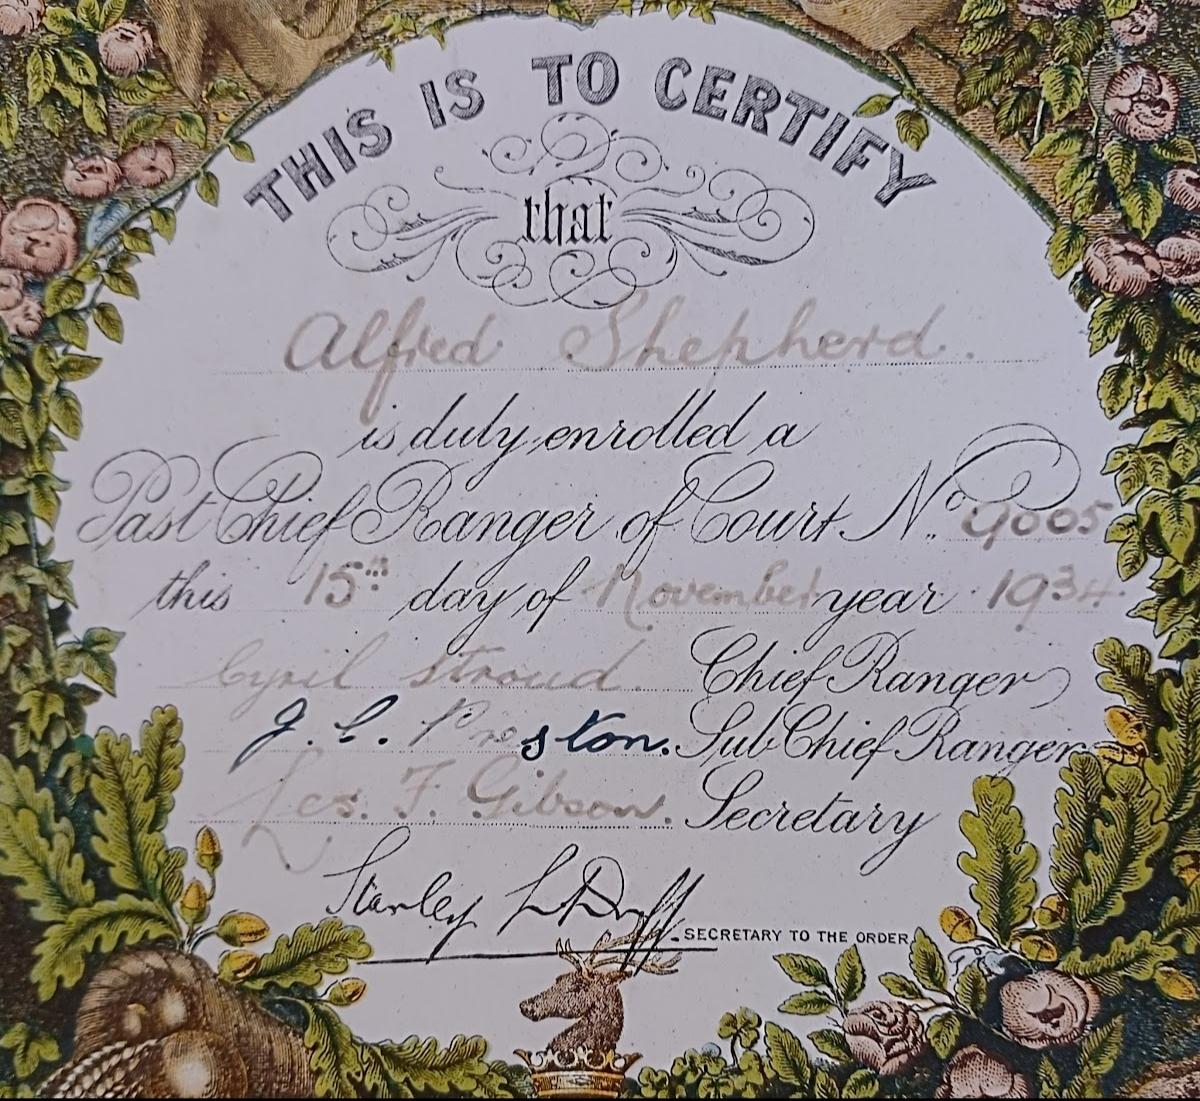 THIS IS TO CERTIFY
that
Alfred Shepherd.
is duly enrolled a
Past Chief Ranger of Court No. 9005
this 15th day of November year 1934.
Cyril Stroud. Chief Ranger
J. C. Preston. Sub Chief Ranger
Les. F. Gibson. Secretary
Stanley L Duff.
SECRETARY TO THE ORDER